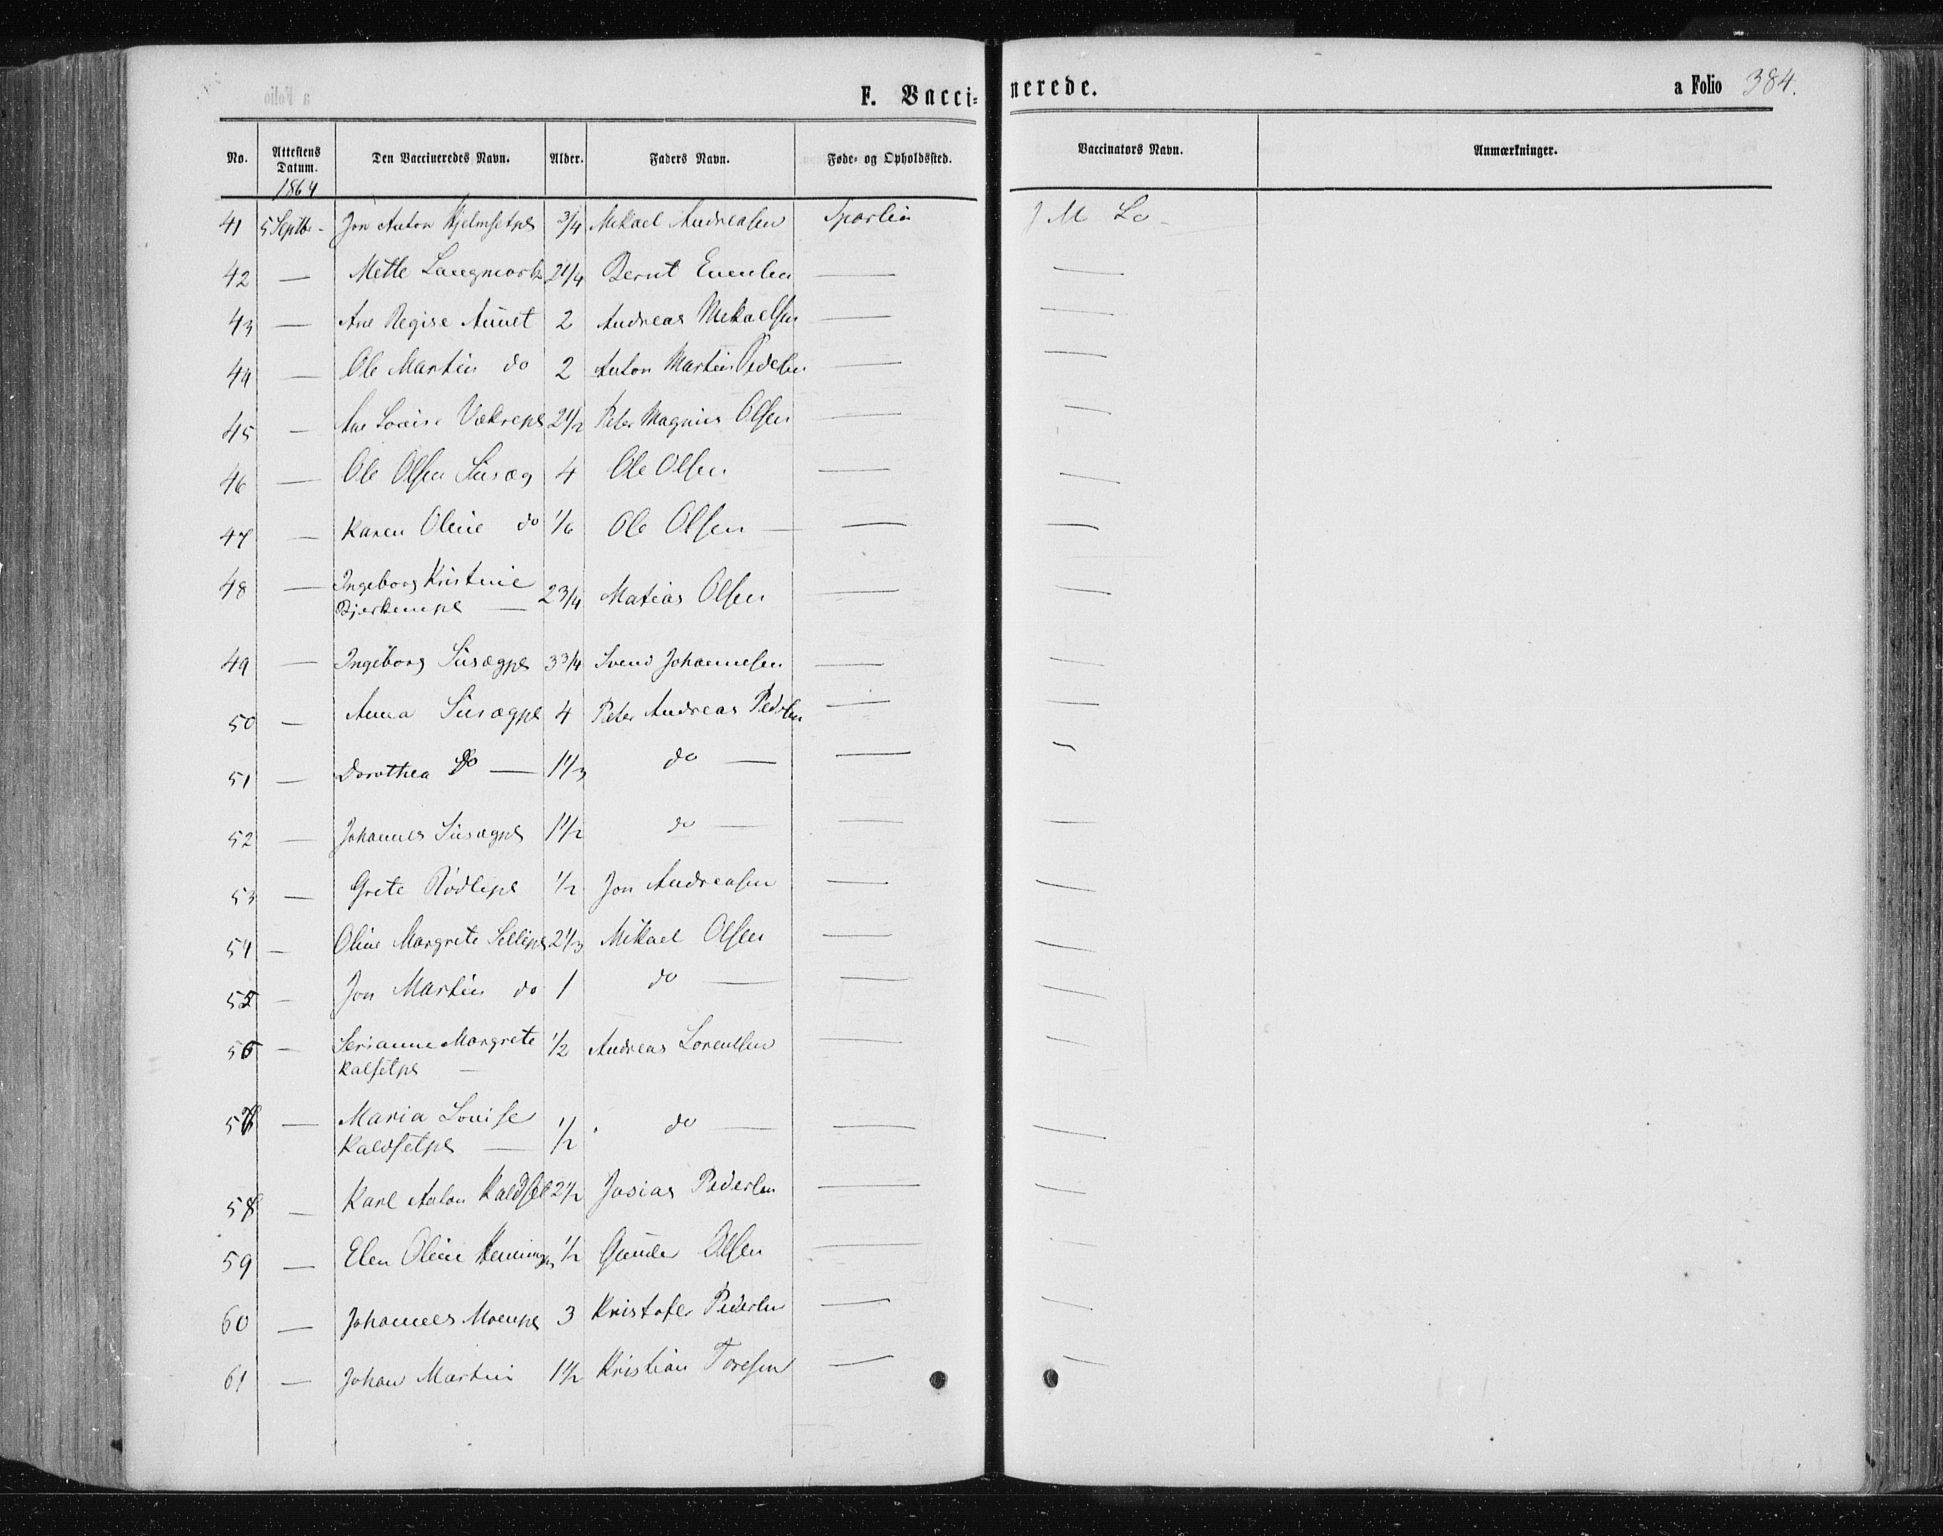 F. Vaccinerede.
a Folio 384.
No. Attestens Datum. Den Vaccineredes Navn. Alder. Faders Navn. Føde- og Opholdssted. Vaccinators Navn. Anmærkninger.
1864
41 5 Septbr Jon Anton Hjelmsetpl 3/4 Mikael Andreasen Sparbu J M Lo
42 — Mette 2 1/4 Bernt Evensen — —
43 — Ane Regise Aunet 2 Andreas Mikaelsen — —
44 — Ole Martin do 2 Anton Martin Pedersen — —
45 — Ane Lovise 2 1/2 Peter Magnus Olsen — —
46 — Ole Olsen 4 Ole Olsen — —
47 — Karen Oline do 1/6 Ole Olsen — —
48 — Ingeborg Kristine
Bjerkempl — 2 3/4 Matias Olsen — —
49 — Ingeborg 3 3/4 Svend Johannesen — —
50 — Anna 4 Peter Andreas Pedersen — —
51 — Dorothea do — 1 1/3 do — — —
52 — Johannes 1 1/2 do — — —
53 — Grete Rødlipl 1/2 Jon Andreasen — —
54 — Oline Margrete Sellipl 2 1/3 Mikael Olsen — —
55 — Jon Martin do 1 do — — —
56 — Serianne Margrete
Kalsetpl — 1/2 Andreas Lorentsen — —
57 — Maria Louise
Kaldsetpl — 1/2 do — — —
58 — Karl Anton Kaldset 2 1/2 Josias Pedersen — —
59 — Elen Oline 1/2 Gunder Olsen — —
60 — Johannes Moenpl 3 Kristofer Pedersen — —
61 — Johan Martin 1 1/2 Kristian Toresen — —